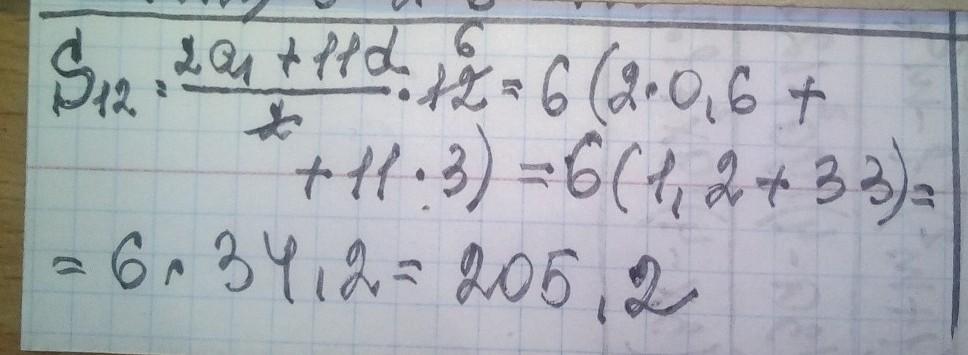 S₁₂ = (2a₁ + 11d)/2 · 12 6 = 6(2·0,6 +
+ 11·3) = 6(1,2 + 33) =
= 6 · 34,2 = 205,2